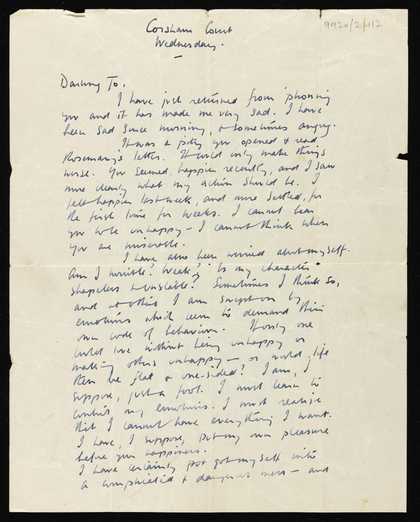 Corsham Court
9920/2/112
Wednesday.
Darling To.
I have just returned from 'phoning
you and it has made me very sad. I have
been sad since morning, & sometimes angry.
It was a pity you opened & read
Rosemary's letter. It could only make things
worse. You seemed happier recently, and I saw
more clearly what my action should be. I
felt happier last week, and more settled, for
the first time for weeks. I cannot bear
you to be unhappy – I cannot think when
you are miserable.
I have also been worried about myself.
Am I horrible? Weak? Is my character
shapeless & unstable? Sometimes I think so,
and at other I am swept on by
emotions which seem to demand their
own code of behaviour. If only one
could love without being unhappy or
making others unhappy – or would life
then be flat & one-sided? I am, I
suppose, just a fool. I must learn to
control my emotions. I must realise
that I cannot have everything I want.
I have, I suppose, put my own pleasure
before your happiness.
I have certainly got myself into
a complicated & dangerous mess – and